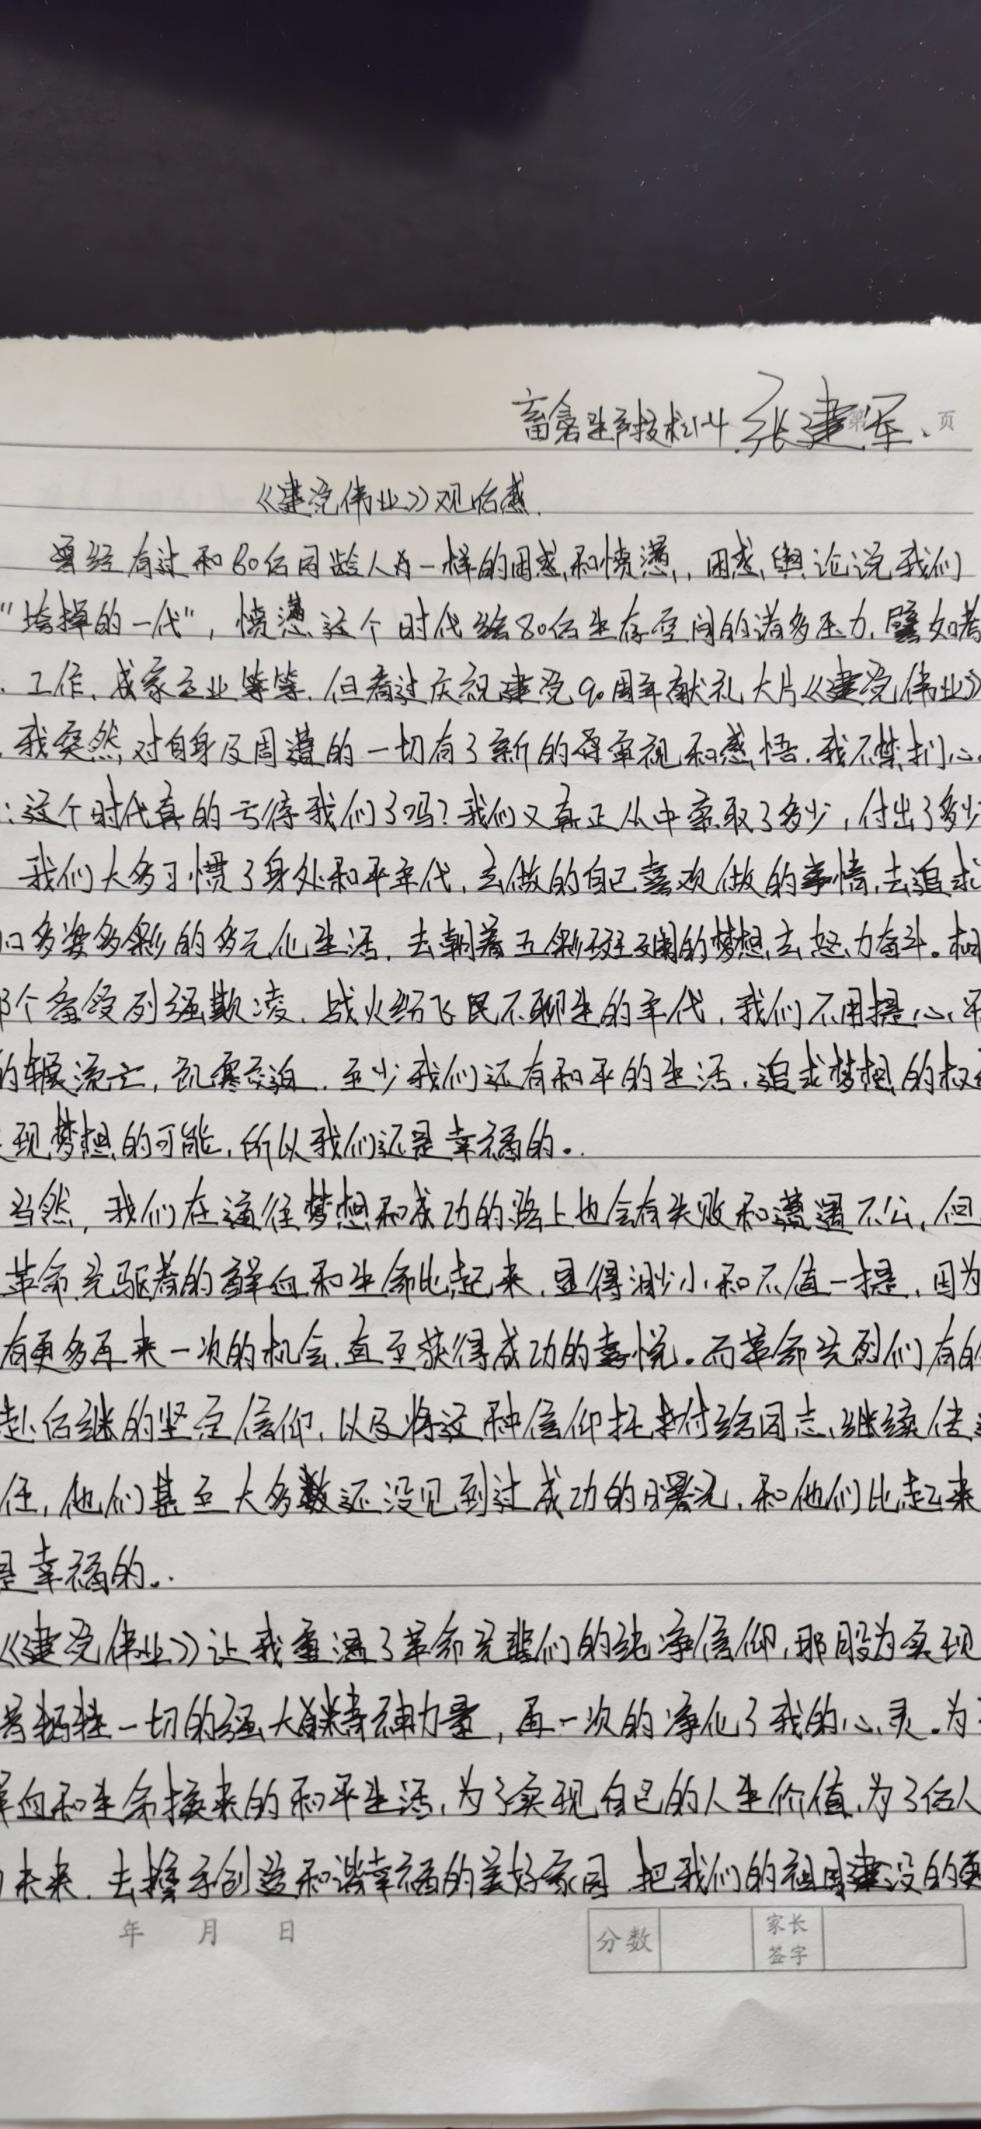 畜禽生产技术1-4 张建军 第 页
《建党伟业》观后感.
曾经有过和80后同龄人有一样的困惑和愤懑,困惑舆论说我们
"垮掉的一代",愤懑这个时代给80后生存空间的诸多压力,譬如考
、工作,成家立业等等.但看过庆祝建党90周年献礼大片《建党伟业》
,我突然对自身及周遭的一切有了新的审视和感悟.我不禁扪心
:这个时代真的亏待我们了吗?我们又真正从中索取了多少,付出了多少
我们大多习惯了身处和平年代,去做的自己喜欢做的事情,去追求
口多姿多彩的多元化生活,去朝着五彩斑斓的梦想去努力奋斗。相
那个备受列强欺凌,战火纷飞民不聊生的年代,我们不用提心
的辗流亡,饥寒交迫.至少我们还有和平的生活,追求梦想的权
现梦想的可能,所以我们还是幸福的。
当然,我们在通往梦想和成功的路上也会有失败和遭遇不公,但
革命先驱者的鲜血和生命比起来,显得渺小和不值一提,因为
有更多再来一次的机会,直至获得成功的喜悦。而革命先烈们有的
赴后继的坚定信仰,以及将这种信仰托付给同志,继续传
任,他们甚至大多数还没见到过成功的曙光,和他们比起来
是幸福的。
《建党伟业》让我重温了革命先辈们的纯净信仰,那股为实现
牺牲一切的强大精神力量,再一次的净化了我的心灵。为
鲜血和生命换来的和平生活,为了实现自己的人生价值,为了后人
未来.去携手创造和谐幸福的美好家园.把我们的祖国建设的更
年 月 日 分数 家长
签字